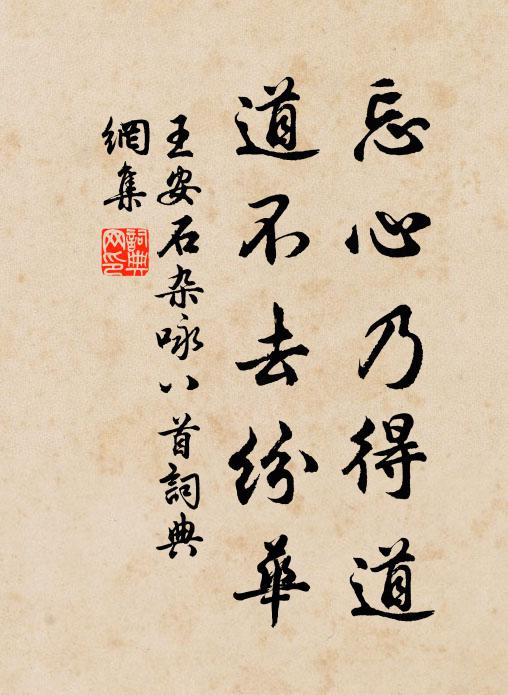 忘心乃得道
道不去纷華
王安石杂咏八首詞典
網集
詞典
网印